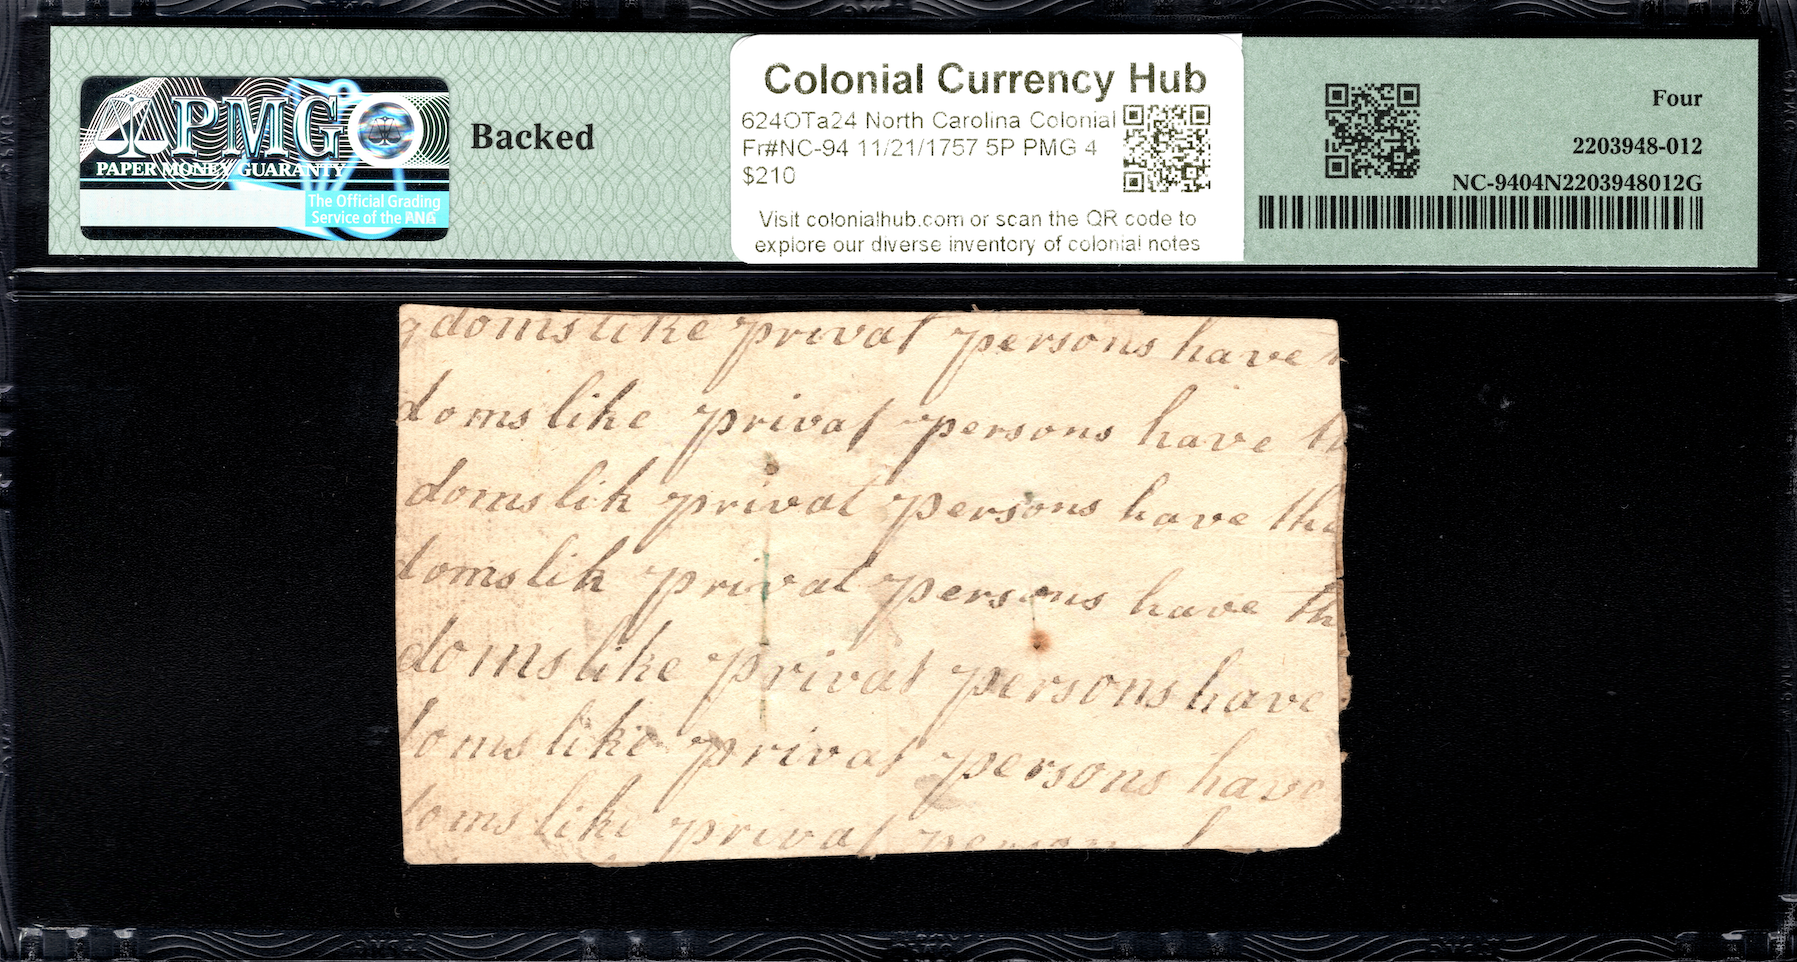 PMG
PAPER MONEY GUARANTY
The Official Grading
Service of the ANA
Backed
Colonial Currency Hub
624OTa24 North Carolina Colonial
Fr#NC-94 11/21/1757 5P PMG 4
$210
Visit colonialhub.com or scan the QR code to
explore our diverse inventory of colonial notes
Four
2203948-012
NC-9404N2203948012G
gdoms like privat persons have
doms like privat persons have th
doms lik privat persons have the
doms lik privat persons have th
doms like privat persons have
doms like privat persons have
oms like privat person